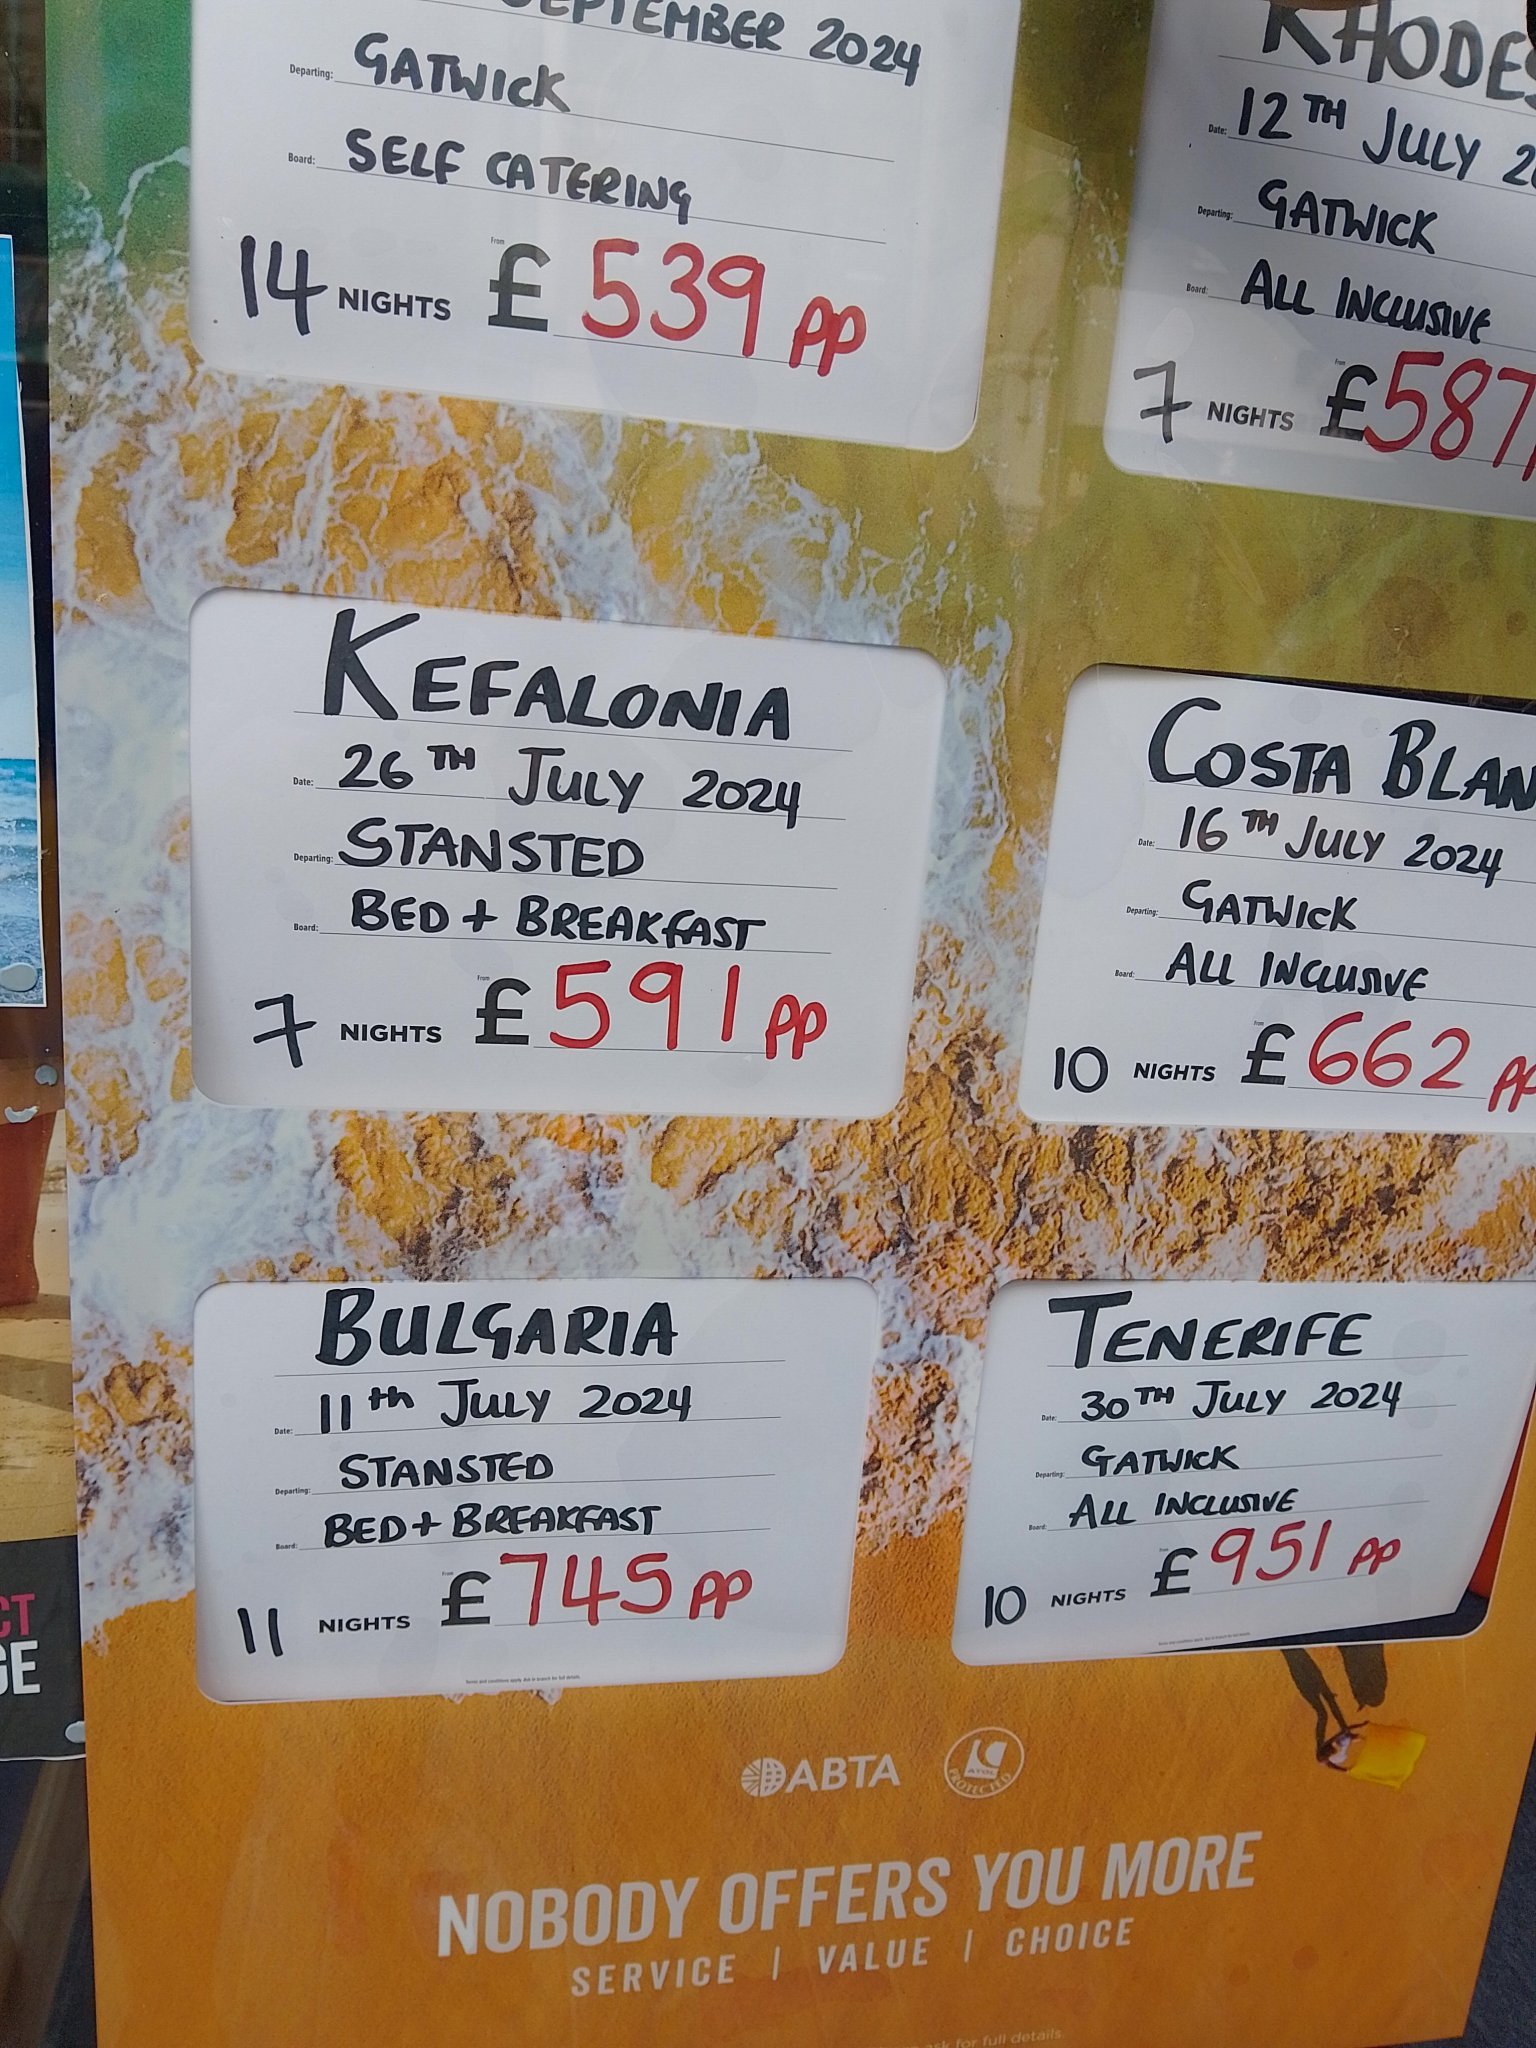 SEPTEMBER 2024
Departing: GATWICK
Board: SELF CATERING
14 NIGHTS From £539 pp
RHODES
Date: 12TH JULY
Departing: GATWICK
Board: ALL INCLUSIVE
7 NIGHTS From £587
KEFALONIA
Date: 26TH JULY 2024
Departing: STANSTED
Board: BED + BREAKFAST
7 NIGHTS From £591 pp
COSTA BLAN
Date: 16TH JULY 2024
Departing: GATWICK
Board: ALL INCLUSIVE
10 NIGHTS From £662 pp
BULGARIA
Date: 11th JULY 2024
Departing: STANSTED
Board: BED + BREAKFAST
11 NIGHTS From £745 pp
Terms and conditions apply. Ask in branch for full details.
TENERIFE
Date: 30TH JULY 2024
Departing: GATWICK
Board: ALL INCLUSIVE
10 NIGHTS From £951 pp
CT
GE
ABTA
ATOL
PROTECTED
NOBODY OFFERS YOU MORE
SERVICE | VALUE | CHOICE
ask for full details.